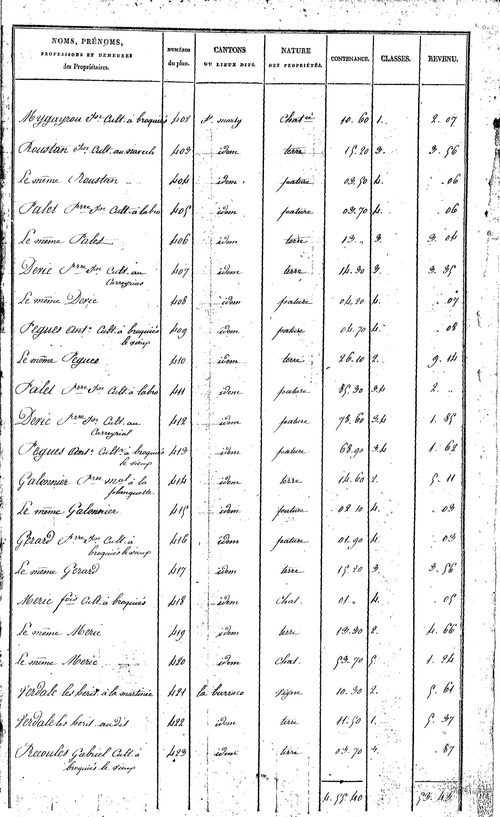 NOMS, PRÉNOMS, PROFESSIONS ET DEMEURES des Propriétaires. NUMÉROS du plan. CANTONS OU LIEUX DITS. NATURE DES PROPRIÉTÉS. CONTENANCE. CLASSES. REVENU.
Cult. à broquiès 402 St. marty Chat. 10. 60 1. 2. 07
Roustan Cult. au 403 idem terre 15. 20 3. 3. 56
Le même Roustan 404 idem pature 03. 50 4. .06
Palet Pierre Jn. Cult. à labro 405 idem pature 03. 70 4. 06
Le même Palet 406 idem terre 13. „ 3. 3. 04
Deric Pierre Jn. Cult. au 407 idem terre 14. 30 3. 3. 35
Le même Deric 408 idem pature 04. 20 4. .07
Pegues ant. Cult. à broquiès le vieux 409 idem pature 04. 70 4. 08
Le même Pegues 410 idem terre 26. 10 2. 9. 14
Palet Pierre Jn. Cult. à labro 411 idem pature 85. 30 3.4 2. „
Deric Pierre Jn. Cult. au 412 idem pature 78. 60 3.4 1. 85
Pegues ant. Cult. à broquiès le vieux 413 idem pature 68. 90 3.4 1. 62
Galonnier Pierre à la 414 idem terre 14. 60 2. 5. 11
Le même Galonnier 415 idem pature 02. 10 4. 03
Gerard Pierre Jn. Cult. à broquiès le vieux 416 idem pature 01. 90 4. 03
Le même Gerard 417 idem terre 15. 20 3. 3. 56
Meric fois Cult. à broquiès 418 idem Chat. 01. „ 4. 05
Le même Meric 419 idem terre 13. 30 2. 4. 66
Le même Meric 420 idem Chat. 53. 70 5. 1. 24
Verdale les herit. à la martinie 421 la barraco vigne 10. 30 2. 5. 61
Verdale les herit. au dit 422 idem terre 11. 50 1. 5. 37
Recoules Gabriel Cult. à broquiès le vieux 423 idem terre 03. 70 3. . 87
4. 55. 40 53. 43